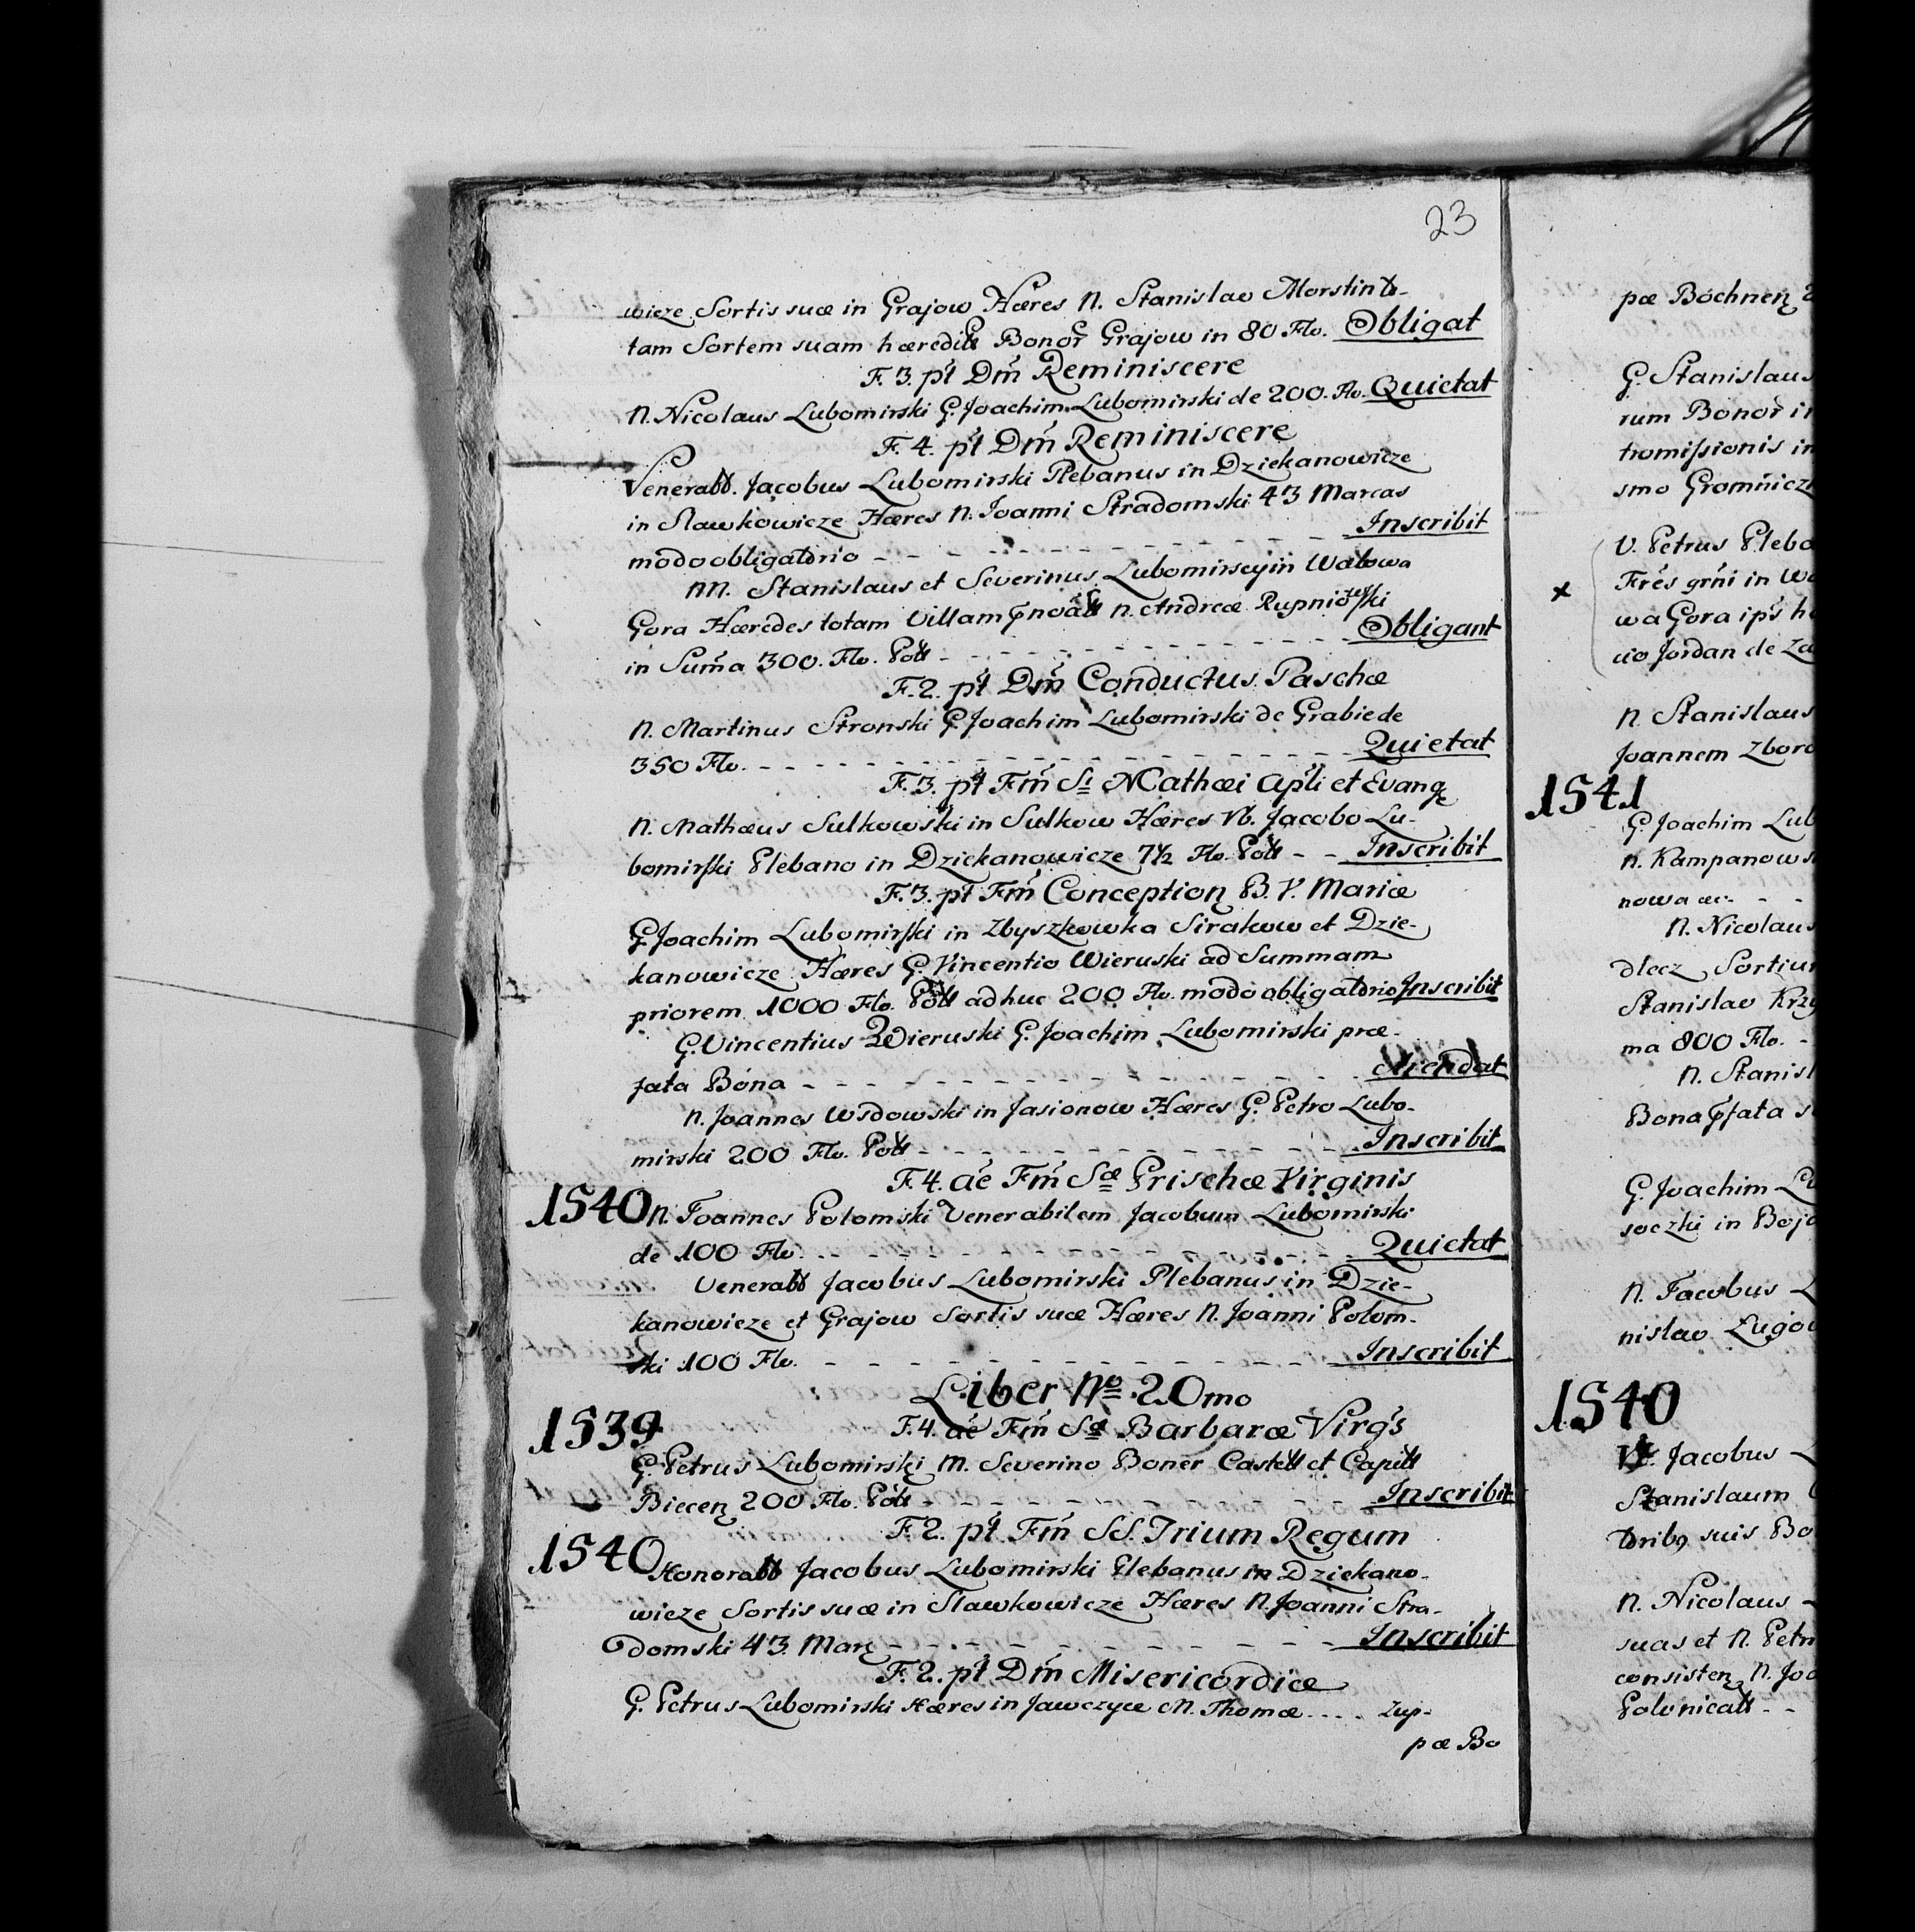 23
wicze Sortis suæ in Grajow Hæres N. Stanislao Morstin to-
tam Sortem suam hæredit Bonor Grajow in 80 Flo. Obligat
F. 3. pt Dm Reminiscere
N. Nicolaus Lubomirski G. Joachim Lubomirski de 200. Flo. Quietat
F. 4. pt Dm Reminiscere
Venerabl. Jacobus Lubomirski Plebanus in Dziekanowicze
in Slawkowicze Hæres N. Joanni Stradomski 43 Marcas
modo obligatorio - - - Inscribit
NN. Stanislaus et Severinus Lubomirscy in Wolowa
Gora Hæredes totam Villam N. Andreæ Rupniowski
in Suma 300. Flo. Poll - - - Obligant
F. 2. pt Dm Conductus Paschæ
N. Martinus Stronski G. Joachim Lubomirski de Grabie de
350 Flo. - - - Quietat
F. 3. pt Fm Si Mathæi Apli et Evang
N. Mathæus Sulkowski in Sulkow Hæres Vb. Jacobo Lu-
bomirski Plebano in Dziekanowicze 7½ Flo. Poll - - Inscribit
F. 3. pt Fm Conception B. V. Mariæ
G. Joachim Lubomirski in Zbyszkowka Sirakow et Dzie-
kanowicze Hæres G. Vincentio Wieruski ad Summam
priorem 1000 Flo. Poll adhuc 200 Flo. modo obligatorio Inscribit
G. Vincentius Wieruski G. Joachim Lubomirski præ-
fata Bona - - - Arendat
N. Joannes Wsdowski in Jasionow Hæres G. Petro Lubo-
mirski 200 Flo. Poll - - - Inscribit
F. 4. ae Fm Sæ Prischæ Virginis
1540 N. Joannes Polomski Venerabilem Jacobum Lubomirski
de 100 Flo. - - - Quietat
Venerabl Jacobus Lubomirski Plebanus in Dzie-
kanowicze et Grajow Sortis suæ Hæres N. Joanni Polom-
ski 100 Flo. - - - Inscribit
Liber No 20mo
1539 F. 4. ae Fm Sæ Barbaræ Virgs
G. Petrus Lubomirski M. Severino Boner Castell et Capit
Biecen 200 Flo. Poll - - - Inscribit
F. 2. pt Fm SS. Trium Regum
1540 Honorabl Jacobus Lubomirski Plebanus in Dziekano-
wicze Sortis suæ in Slawkowicze Hæres N. Joanni Stra-
domski 43 Marc - - - Inscribit
F. 2. pt Dm Misericordiæ
G. Petrus Lubomirski Hæres in Jawczyce M. Thomæ .... Zup-
pæ Bo
pæ Bochnen
G. Stanislaus
rum Bonor in
tromissionis in
smo
V. Petrus Pleba
Fres grni in Wo
x
wa Gora ips h
cio Jordan de Za
N. Stanislaus
Joannem Zboro
1541
G. Joachim Lub
N. Kampanows
nowa
N. Nicolaus
dlecz Sortiu
Stanislao Krzy
ma 800 Flo. -
N. Stanisl
Bona pfata s
G. Joachim Lu
soczki in Boja
N. Jacobus L
nislao Lugow
1540
Vb. Jacobus L
Stanislaum
toribq suis Bo
N. Nicolaus L
suas et N. Petr
consisten N. Joa
Polonicall - -